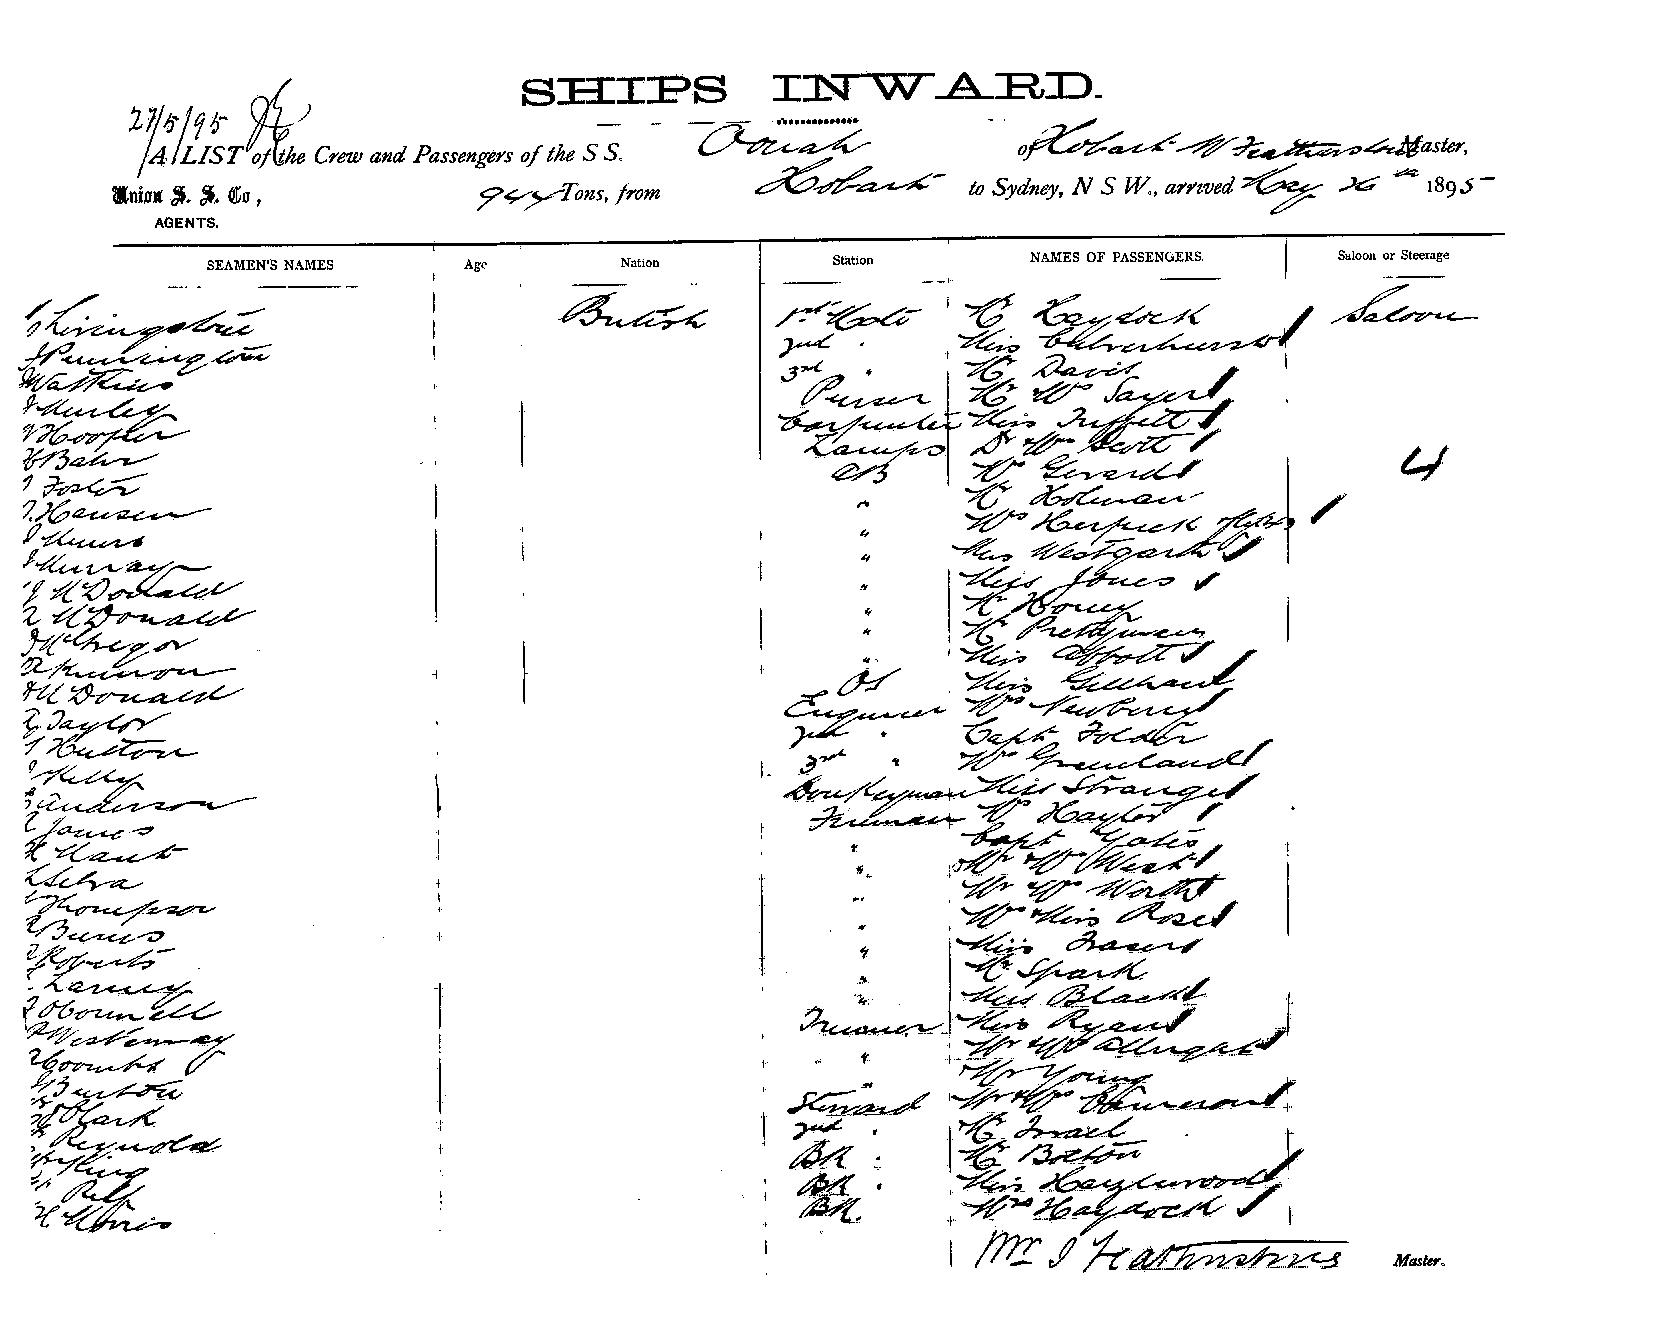 SHIPS INWARD.
27/5/95
A LIST of the Crew and Passengers of the S S. Oonah of Hobart W Featherstone Master,
Union S. S. Co, 944 Tons, from Hobart to Sydney, N S W., arrived May 26th 1895
AGENTS.
SEAMEN'S NAMES Age Nation Station NAMES OF PASSENGERS. Saloon or Steerage
Livingstone British 1st Mate Mr Haydock Saloon
Pennington 2nd " Miss Culverhurst
Watkins 3rd " Mr Davis
Murley Purser Mr Mrs Sayer
Hooper Carpenter Miss Triffett
Bahr Lamps Dr & Mrs Scott
Foster AB Mrs Gerard 4
Hansen " Mr Holman
Munro " Mrs Herpick
Murray " Miss Westgarth
McDonald " Miss Jones
McDonald " Mr Honey
McGregor " Mr Prettyman
Kinnon " Miss Abbott
McDonald OS Miss Gillhard
Taylor Engineer Mrs Newbery
Hutton 2nd " Capt Folder
Kelly 3rd " Mrs Greenland
Anderson Donkeyman Miss Strange
James Fireman Mrs Haylor
Mant " Capt Yates
Selva " Mr & Mrs West
Thompson " Mr & Mrs Worth
Burns " Mrs & Miss Rose
Roberts " Miss Fraser
Larney " Mr Spark
OConnell " Miss Black
Westenway Trimmer Miss Ryan
Coombs " Mr & Mrs
Burton " Mr Young
Clark Steward Mr & Mrs Cameron
Reynolds 2nd " Mr Israel
King BR " Mr Bolton
Relf BR " Miss Hazlewood
H Morris BR. Mrs Haydock
Featherstone Master.